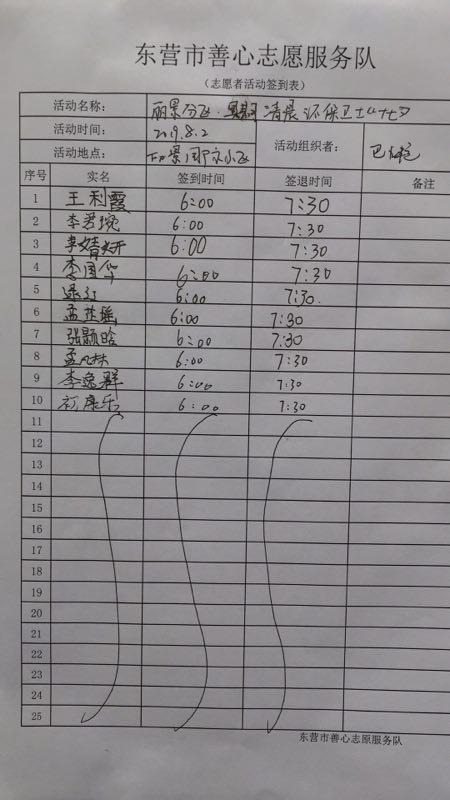 东营市善心志愿服务队
（志愿者活动签到表）
活动名称： 丽景分队·清晨环保卫士
活动时间： 2019.8.2
活动地点： 活动组织者：
序号 实名 签到时间 签退时间 备注
1 王利霞 6:00 7:30
2 李君琬 6:00 7:30
3 李婧 6:00 7:30
4 李国华 6:00 7:30
5 6:00 7:30
6 孟 瑶 6:00 7:30
7 张颢晗 6:00 7:30
8 孟凡林 6:00 7:30
9 李逸群 6:00 7:30
10 康乐 6:00 7:30
11
12
13
14
15
16
17
18
19
20
21
22
23
24
25
东营市善心志愿服务队